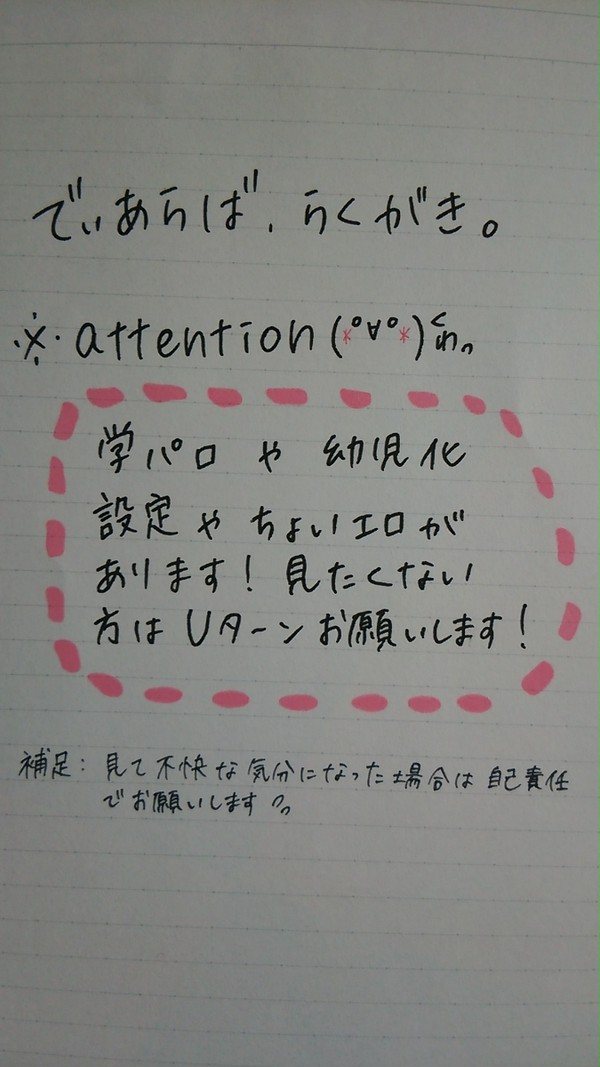 でぃあらば、らくがき。
※attention(*°∀°*)くわっ
学パロ や 幼児化
設定や ちょいエロが
あります！見たくない
方は Uターンお願いします！
補足：見て不快な気分になった場合は自己責任
でお願いします